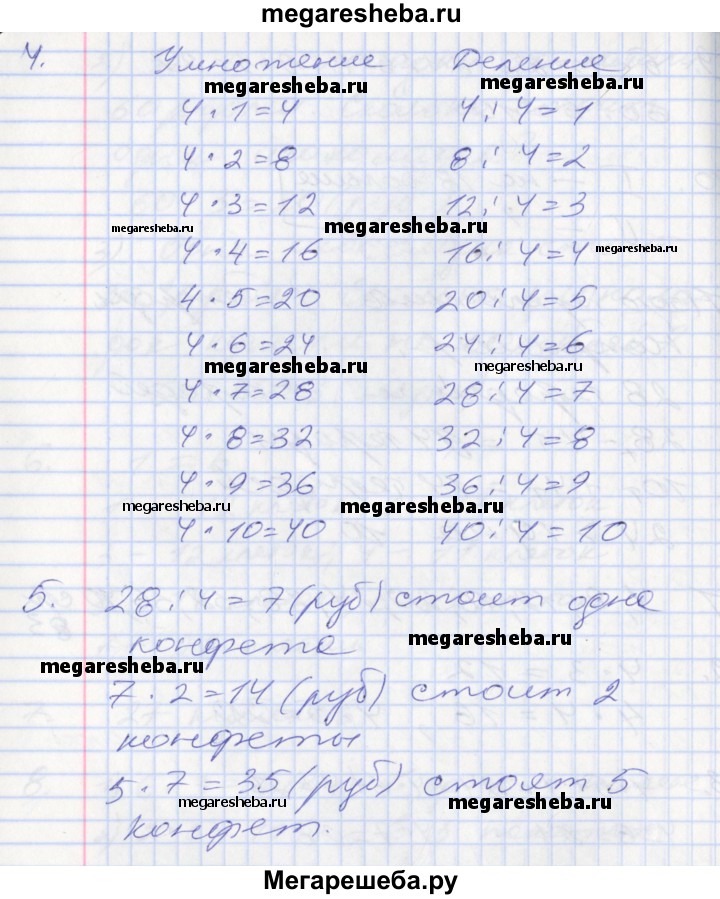 megaresheba.ru
4. Умножение Деление
megaresheba.ru megaresheba.ru
4 · 1 = 4 4 : 4 = 1
4 · 2 = 8 8 : 4 = 2
4 · 3 = 12 12 : 4 = 3
megaresheba.ru megaresheba.ru
4 · 4 = 16 16 : 4 = 4 megaresheba.ru
4 · 5 = 20 20 : 4 = 5
4 · 6 = 24 24 : 4 = 6
megaresheba.ru megaresheba.ru
4 · 7 = 28 28 : 4 = 7
4 · 8 = 32 32 : 4 = 8
4 · 9 = 36 36 : 4 = 9
megaresheba.ru megaresheba.ru
4 · 10 = 40 40 : 4 = 10
5. 28 : 4 = 7 (руб) стоит одна
конфета megaresheba.ru
megaresheba.ru
7 · 2 = 14 (руб) стоит 2
конфеты
5 · 7 = 35 (руб) стоят 5
megaresheba.ru megaresheba.ru
конфет.
Мегарешеба.ру